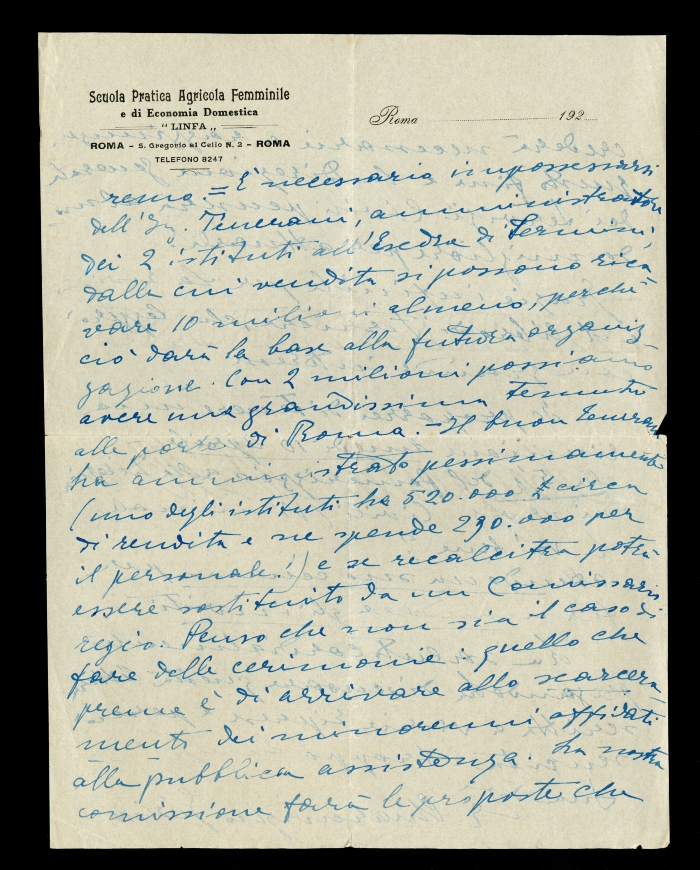 Scuola Pratica Agricola Femminile
e di Economia Domestica
“ LINFA „
ROMA – S. Gregorio al Celio N. 2 – ROMA
TELEFONO 8247
Roma 192
remo. = E' necessario impossessarsi
dell'Ing. Tenerani, amministratore
dei 2 istituti all'Esedra di Termini,
dalla cui vendita si possono rica
vare 10 milioni almeno, perchè
ciò darà la base alla futura organiz
zazione. Con 2 milioni possiamo
avere una grandissima tenuta
alle porte di Roma. – Il buon Tenerani
ha amministrato pessimamente
(uno degli istituti ha 520.000 £ circa
di rendita e ne spende 290.000 per
il personale!) e se recalcitra potrà
essere sostituito da un Comissario
regio. Penso che non sia il caso di
fare delle cerimonie: quello che
preme è di arrivare allo scarcera
mento dei minorenni affidati
alla pubblica assistenza. La nostra
comissione farà le proposte che